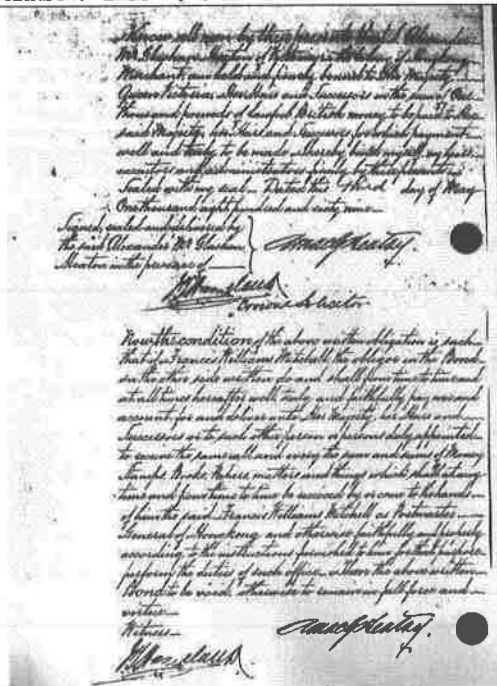 Know all men by these presents that I Alexander
McGlashan Heaton of Victoria in the Colony of Hongkong
Merchant am held and firmly bound to Her Majesty
Queen Victoria, Her Heirs and Successors in the sum of One
thousand pounds of lawful British money to be paid to Her
said Majesty, her Heirs and Successors for which payment
well and truly to be made I hereby bind myself, my heirs
executors and administrators firmly by these presents
Sealed with my seal. Dated this third day of May
One thousand eight hundred and sixty nine
Signed, sealed and delivered by
the said Alexander McGlashan
Heaton in the presence of
Crown Solicitor
Now the condition of the above written obligation is such
that if Francis Williams Mitchell, the obligor in the Bond
on the other side written do and shall from time to time and
at all times hereafter well, truly and faithfully pay over and
account for and deliver unto Her Majesty, her Heirs and
Successors or to such other person or persons duly appointed
to receive the same all and every the sum and sums of Money
Stamps, Books, Papers, matters and things which shall at any
time and from time to time be received by or come to the hands
of him the said Francis Williams Mitchell as Postmaster
General of Hongkong and otherwise faithfully and properly
according to the instructions furnished to him for that purpose
perform the duties of such office. Then the above written
Bond to be void, otherwise to remain in full force and
virtue
Witness